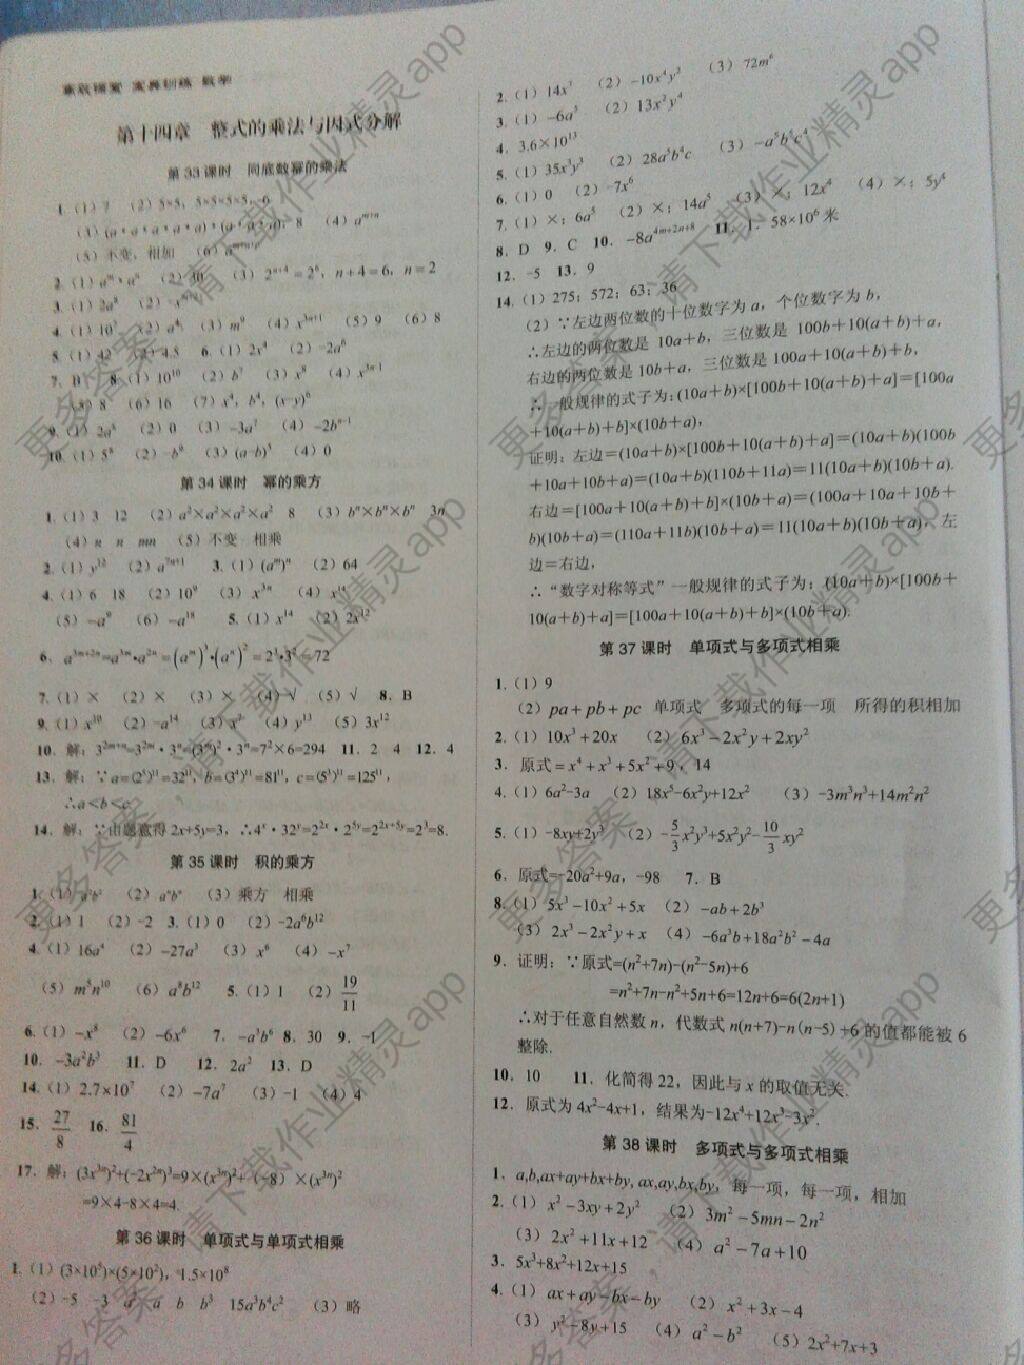 第十四章 整式的乘法与因式分解
第 33 课时 同底数幂的乘法
(5) 不变，相加
3.(1) 2a⁸
4.(1) 10⁷ (2) a⁶ (3) m⁹ (4) x³ⁿ⁺¹ (5) 9 (6) 8
5.(1) 42 (2) 4.5 6.(1) 2x⁴ (2) -2a⁶
7. B 8.(1) 10¹⁰ (2) b⁷ (3) x⁸
(5) 8 (6) 16 (7) x⁴，b⁴，(x-y)⁶
9.(1) 2a⁵ (2) 0 (3) -3a⁷ (4) -2bⁿ⁻¹
10.(1) 5⁸ (2) -b⁶ (3) (a-b)⁵ (4) 0
第 34 课时 幂的乘方
1.(1) 3 12 (2) a²×a²×a²×a² 8 (3) bⁿ×bⁿ×bⁿ 3n
(4) n n mn (5) 不变 相乘
2.(1) y¹² 3.(1) (aᵐ)ⁿ (2) 64
4.(1) 6 18 (2) 10⁹ (3) x³ⁿ
(5) -a⁹ (6) -a¹⁸ 5.(1) x¹⁴ (2) 2x¹²
6. a³ᵐ⁺²ⁿ=a³ᵐ·a²ⁿ=(aᵐ)³·(aⁿ)²=2³·3²=72
7.(1) × (2) × (3) × (4) √ (5) √ 8. B
9.(1) x¹⁰ (2) -a¹⁴ (4) y¹³ (5) 3x¹²
10. 解：3²ᵐ⁺ⁿ=3²ᵐ·3ⁿ=(3ᵐ)²·3ⁿ=7²×6=294 11. 2 4 12. 4
13. 解：∵a=(2⁵)¹¹=32¹¹，b=(3⁴)¹¹=81¹¹，c=(5³)¹¹=125¹¹，
∴a<b<c.
14. 解：∵由题意得 2x+5y=3，∴4ˣ·32ʸ=2²ˣ·2⁵ʸ=2²ˣ⁺⁵ʸ=2³=8.
第 35 课时 积的乘方
1.(1) a²b² (2) aⁿbⁿ (3) 乘方 相乘
2.(1) 1 (2) -2 3.(1) 0 (2) -2a⁶b¹²
4.(1) 16a⁴ (2) -27a³ (3) x⁶ (4) -x⁷
(5) m⁵n¹⁰ (6) a⁸b¹² 5.(1) 1 (2) 19/11
6.(1) -x⁸ (2) -6x⁶ 7. -a³b⁶ 8. 30 9. -1
10. -3a²b³ 11. D 12. 2a² 13. D
14.(1) 2.7×10⁷ (2) -7a⁷ (3) -1 (4) 4
15. 27/8 16. 81/4
17. 解：(3x³ⁿ)²+(-2x²ⁿ)³=9×(x³ⁿ)²+(-8)×(x³ⁿ)²
=9×4-8×4=4.
第 36 课时 单项式与单项式相乘
1.(1) (3×10⁵)×(5×10²)，1.5×10⁸
(2) -5 -3 a² a b b³ 15a³b⁴c² (3) 略
2.(1) 14x⁷ (2) -10x⁴y³ (3) 72m⁶
3.(1) -6a⁵ (2) 13x²y⁴
4. 3.6×10¹³
5.(1) 35x³y³ (2) 28a⁵b⁴c (3) -a⁵b⁵c⁴
6.(1) 0 (2) -7x⁶
7.(1) ×；6a⁵ (2) ×；14a⁵ (3) ×；12x⁴ (4) ×；5y⁶
8. D 9. C 10. -8a⁴ᵐ⁺²ⁿ⁺⁸ 11. 1.58×10⁶ 米
12. -5 13. 9
14.(1) 275；572；63；36
(2) ∵左边两位数的十位数字为 a，个位数字为 b，
∴左边的两位数是 10a+b，三位数是 100b+10(a+b)+a，
右边的两位数是 10b+a，三位数是 100a+10(a+b)+b，
∴一般规律的式子为：(10a+b)×[100b+10(a+b)+a]=[100a
+10(a+b)+b]×(10b+a)，
证明：左边=(10a+b)×[100b+10(a+b)+a]=(10a+b)(100b
+10a+10b+a)=(10a+b)(110b+11a)=11(10a+b)(10b+a).
右边=[100a+10(a+b)+b]×(10b+a)=(100a+10a+10b+
b)(10b+a)=(110a+11b)(10b+a)=11(10a+b)(10b+a)，左
边=右边，
∴“数字对称等式”一般规律的式子为：(10a+b)×[100b+
10(a+b)+a]=[100a+10(a+b)+b]×(10b+a).
第 37 课时 单项式与多项式相乘
1.(1) 9
(2) pa+pb+pc 单项式 多项式的每一项 所得的积相加
2.(1) 10x³+20x (2) 6x³-2x²y+2xy²
3. 原式=x⁴+x³+5x²+9，14
4.(1) 6a²-3a (2) 18x⁵-6x²y+12x² (3) -3m³n³+14m²n²
5.(1) -8xy+2y³ (2) -5/3x²y³+5x²y²-10/3xy²
6. 原式=-20a²+9a，-98 7. B
8.(1) 5x³-10x²+5x (2) -ab+2b³
(3) 2x³-2x²y+x (4) -6a³b+18a²b²-4a
9. 证明：∵原式=(n²+7n)-(n²-5n)+6
=n²+7n-n²+5n+6=12n+6=6(2n+1)
∴对于任意自然数 n，代数式 n(n+7)-n(n-5)+6 的值都能被 6
整除.
10. 10 11. 化简得 22，因此与 x 的取值无关.
12. 原式为 4x²-4x+1，结果为-12x⁴+12x³-3x².
第 38 课时 多项式与多项式相乘
1. a,b,ax+ay+bx+by, ax,ay,bx,by，每一项，每一项，相加
2.(1) x²-3xy+2y² (2) 3m²-5mn-2n²
(3) 2x²+11x+12 (4) a²-7a+10
3. 5x³+8x²+12x+15
4.(1) ax+ay-bx-by (2) x²+3x-4
(3) y²-8y+15 (4) a²-b² (5) 2x²+7x+3
更多答案 请下载作业精灵app